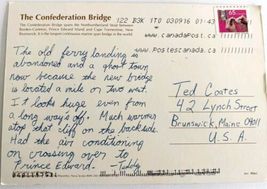 The Confederation Bridge
The Confederation Bridge spans the Northumberland Strait between
Borden-Carleton, Prince Edward Island and Cape Tormentine, New
Brunswick. It is the longest continuous marine span bridge in the world.
122 B3K 1T0 030916 01:43
www.canadaPost.ca
www.Postescanada.ca
65
The old ferry landing is
abandoned and a ghost town
now because the new bridge
is located a mile or two west.
It looks huge even from
a long way off. Much warmer
atop that cliff on the backside.
Had the air conditioning
on crossing over to
Prince Edward. - Teddy
Ted Coates
42 Lynch Street
Brunswick, Maine 04011
U.S.A.